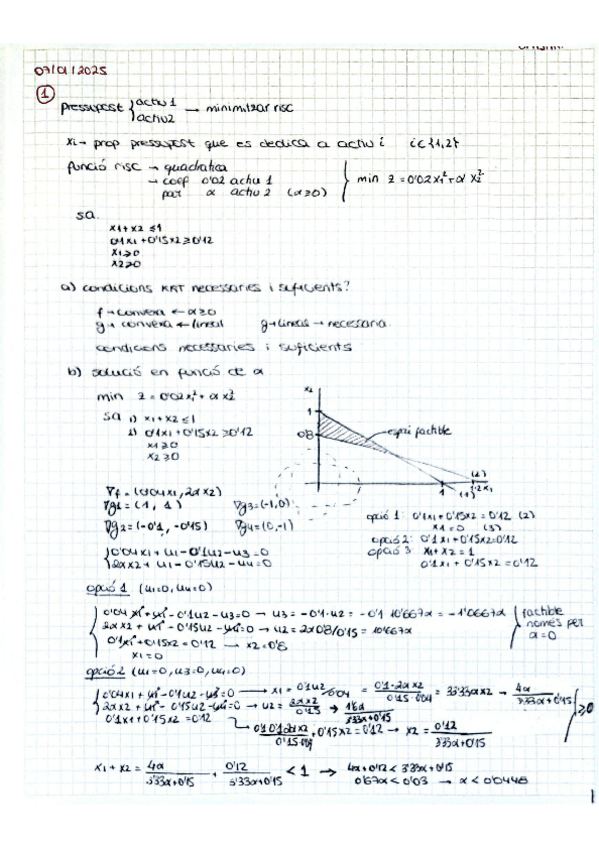 07/01/2025
1
pressupost { actiu 1 → minimitzar risc
actiu 2
xi → prop pressupost que es dedica a actiu i i∈{1,2}
funció risc → quadratica
→ coef 0'02 actiu 1
per α actiu 2 (α≥0)
min z = 0'02x1² + α x2²
s.a.
x1 + x2 ≤ 1
0'1x1 + 0'15x2 ≥ 0'12
x1≥0
x2≥0
a) condicions KKT necessaries i suficients?
f → convexa ← α≥0
g → convexa ← lineal g → lineals → necessaria
condicions necessaries i suficients
b) solució en funció de α
min z = 0'02x1² + α x2²
sa 1) x1 + x2 ≤ 1
2) 0'1x1 + 0'15x2 ≥ 0'12
x1 ≥ 0
x2 ≥ 0
x2
1
0'8
espai factible
(2)
1 (1) 1'2 x1
∇f = (0'04x1, 2αx2)
∇g1 = (1, 1) ∇g3 = (-1,0)
∇g2 = (-0'1, -0'15) ∇g4 = (0,-1)
{ 0'04x1 + u1 - 0'1u2 - u3 = 0
2αx2 + u1 - 0'15u2 - u4 = 0
opció 1: 0'1x1 + 0'15x2 = 0'12 (2)
x1 = 0 (3)
opció 2: 0'1x1 + 0'15x2 = 0'12
opció 3: x1 + x2 = 1
0'1x1 + 0'15x2 = 0'12
opció 1 (u1=0, u4=0)
0'04 x1 + u1 - 0'1u2 - u3 = 0 → u3 = -0'1·u2 = -0'1 10'667α = -1'0667α
2αx2 + u1 - 0'15u2 - u4 = 0 → u2 = 2α0'8/0'15 = 10'667α
0'1x1 + 0'15x2 = 0'12 → x2 = 0'8
x1 = 0
factible
només per
α = 0
opció 2 (u1=0, u3=0, u4=0)
0'04x1 + u1 - 0'1u2 - u3 = 0 → x1 = 0'1u2/0'04 = 0'1·2αx2/0'15·0'04 = 33'33αx2 → 4α/3'33α+0'15
2αx2 + u1 - 0'15u2 - u4 = 0 → u2 = 2αx2/0'15 → 1'6α/3'33α+0'15 ≥0
0'1x1 + 0'15x2 = 0'12
0'1 0'1 2αx2/0'15·0'04 + 0'15x2 = 0'12 → x2 = 0'12/3'33α+0'15
x1 + x2 = 4α/3'33α+0'15 + 0'12/3'33α+0'15 < 1 → 4α + 0'12 < 3'33α + 0'15
0'67α < 0'03 → α < 0'0448
1